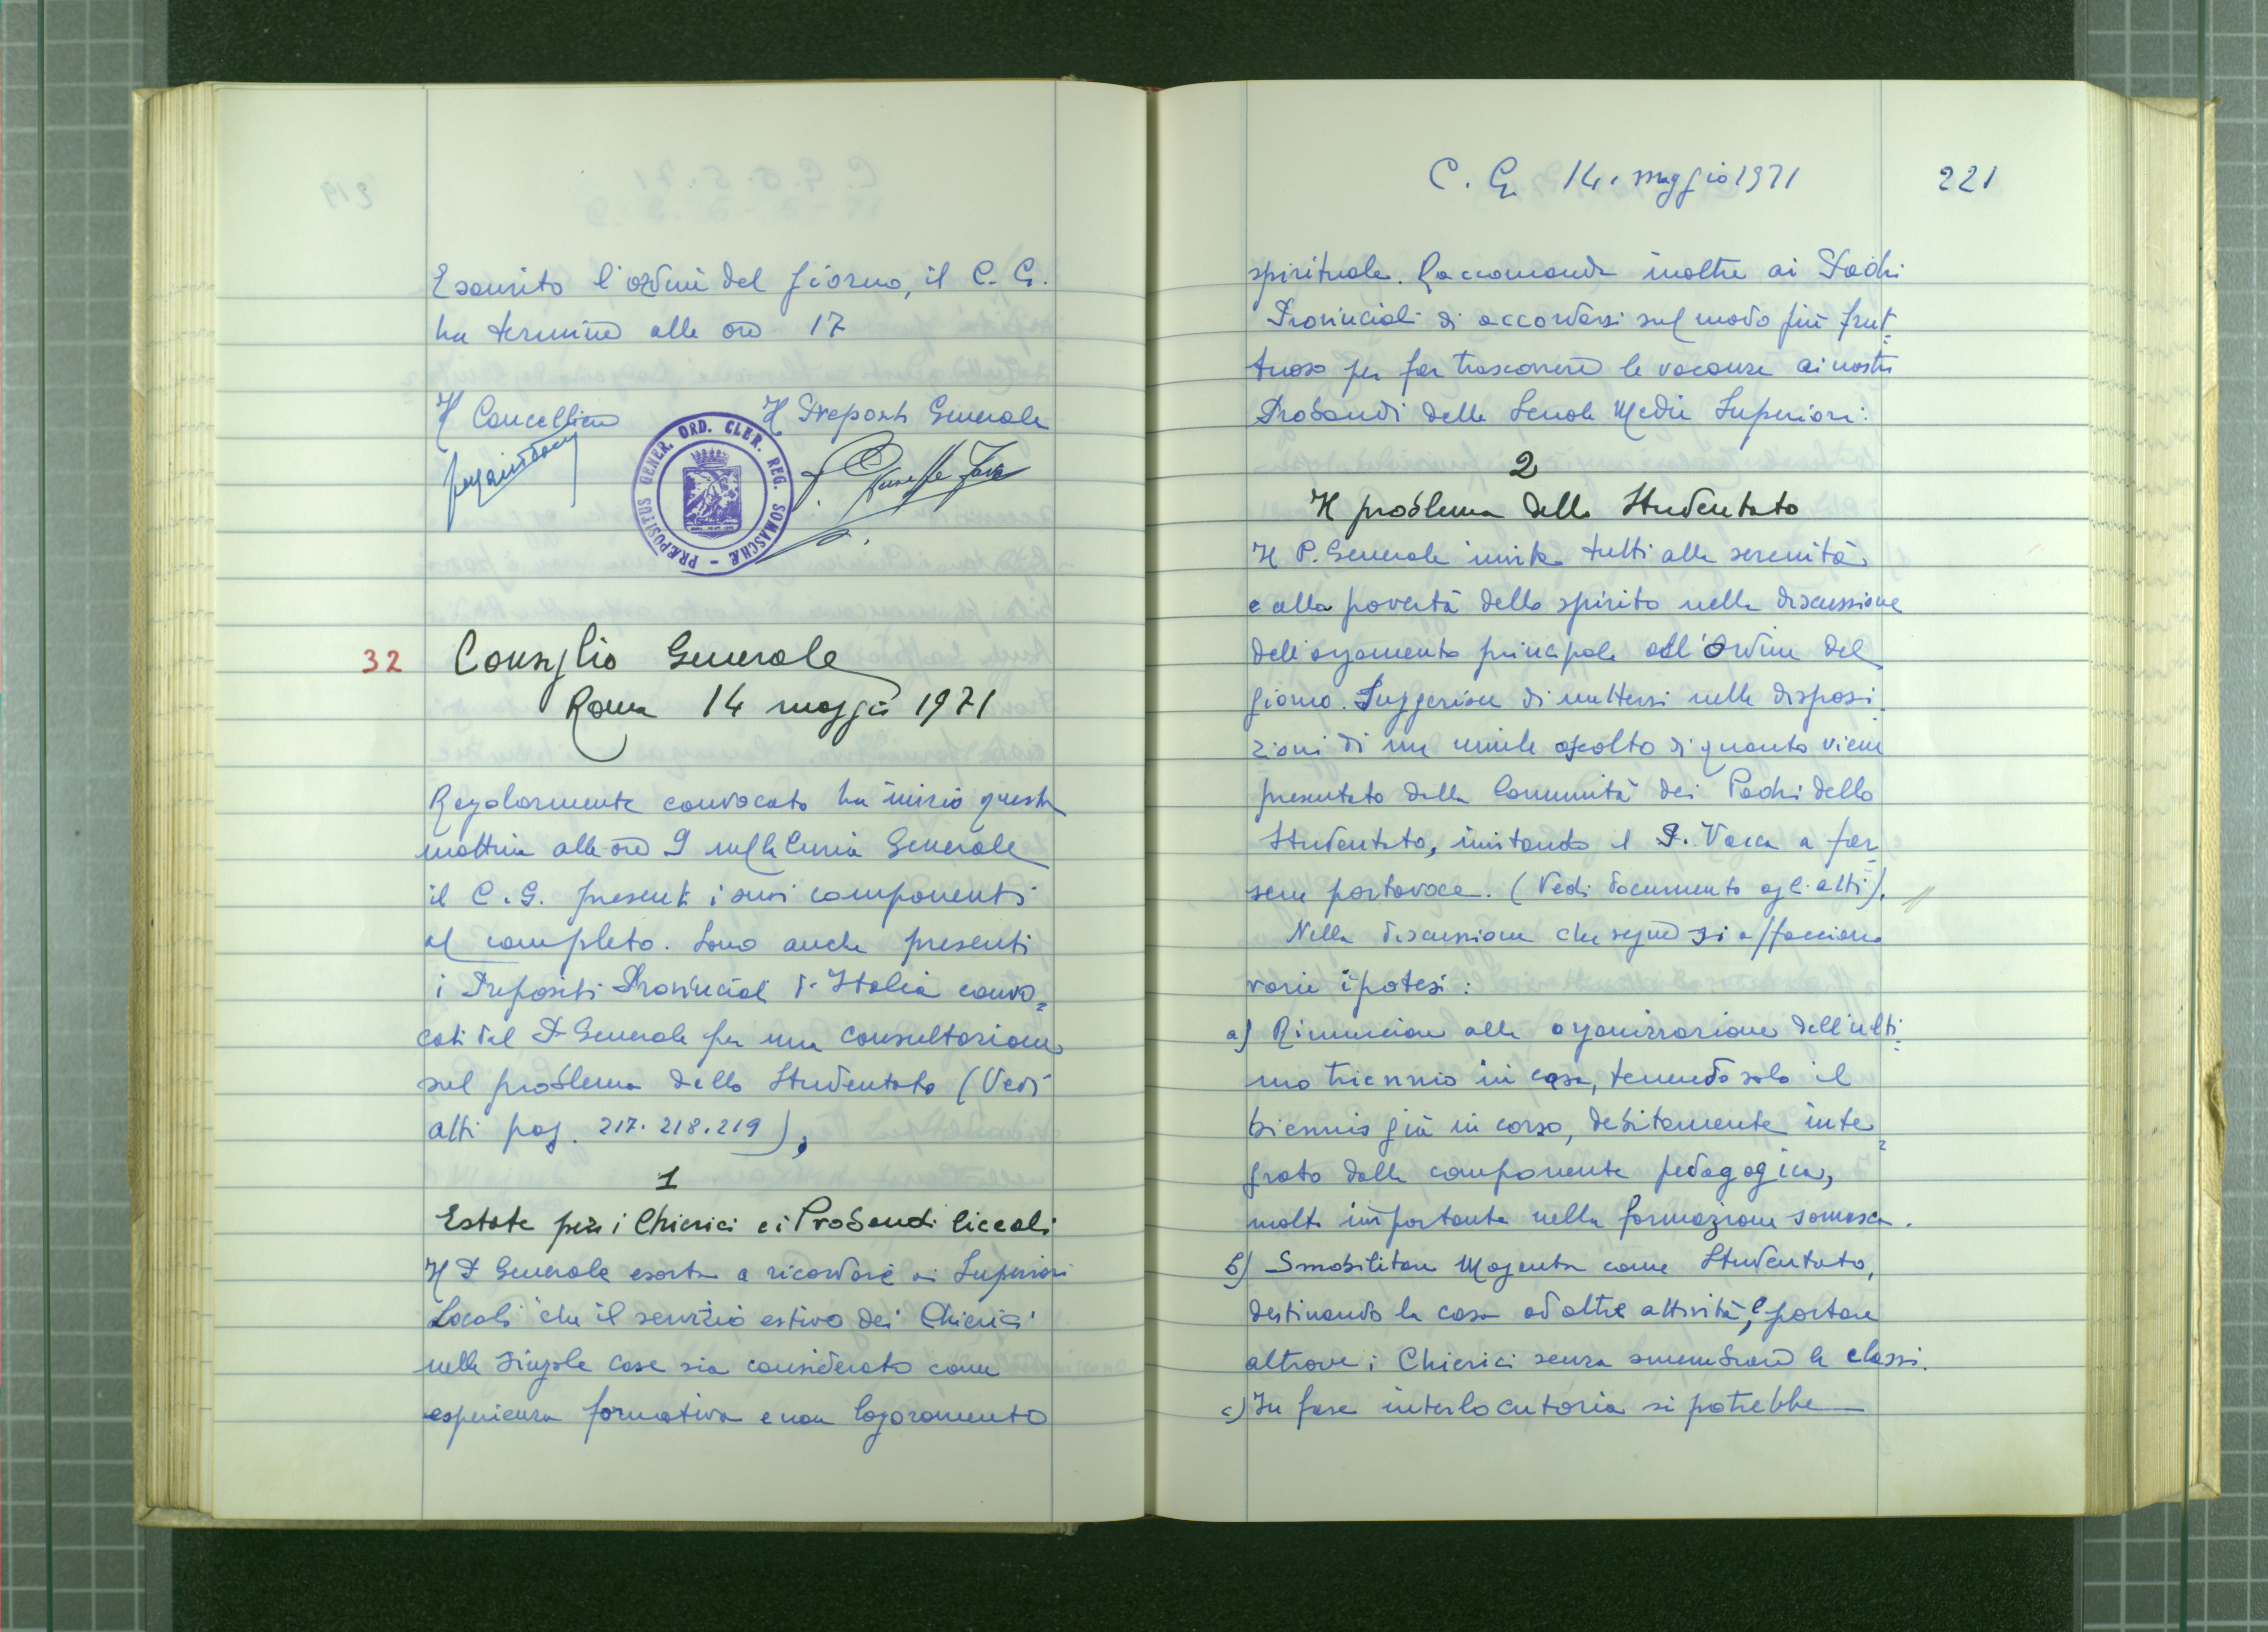 Esaurito l'ordine del giorno, il C. G.
ha termine alle ore 17
Il Cancelliere
Il Preposto Generale
PRÆPOSITUS GENER. ORD. CLER. REG. SOMASCHÆ
P. Giuseppe Fava
32
Consiglio Generale
Roma 14 maggio 1971
Regolarmente convocato ha inizio questa
mattina alle ore 9 nella Curia Generale
il C. G. presenti i suoi componenti
al completo. Sono anche presenti
i Prepositi Provinciali d'Italia convo=
cati dal P. Generale per una consultazione
sul problema dello Studentato (Vedi
Atti pag. 217. 218. 219).
1
Estate per i Chierici e i Probandi liceali
Il P. Generale esorta a ricordare ai Superiori
Locali che il servizio estivo dei Chierici
nelle singole case sia considerato come
esperienza formativa e non logoramento
C. G. 14. maggio 1971
221
spirituale. Raccomanda inoltre ai Padri
Provinciali di accordarsi sul modo più frut=
tuoso per far trascorrere le vacanze ai nostri
Probandi delle Scuole Medie Superiori.
2
Il problema dello Studentato
Il P. Generale invita tutti alla serenità
e alla povertà dello spirito nella discussione
dell'argomento principale all'Ordine del
giorno. Suggerisce di mettersi nelle disposi=
zioni di un umile ascolto di quanto viene
presentato dalla Comunità dei Padri dello
Studentato, invitando il P. Vacca a far=
sene portavoce. (Vedi documento agli atti).
Nella discussione che segue si affacciano
varie ipotesi:
a) Rinunciare alla organizzazione dell'ulti=
mo triennio in casa, tenendo solo il
biennio già in corso, debitamente inte=
grato dalla componente pedagogica,
molto importante nella formazione somasca.
b) Smobilitare Magenta come Studentato,
destinando la casa ad altre attività, e portare
altrove i Chierici senza smembrare le classi.
c) In fase interlocutoria si potrebbe